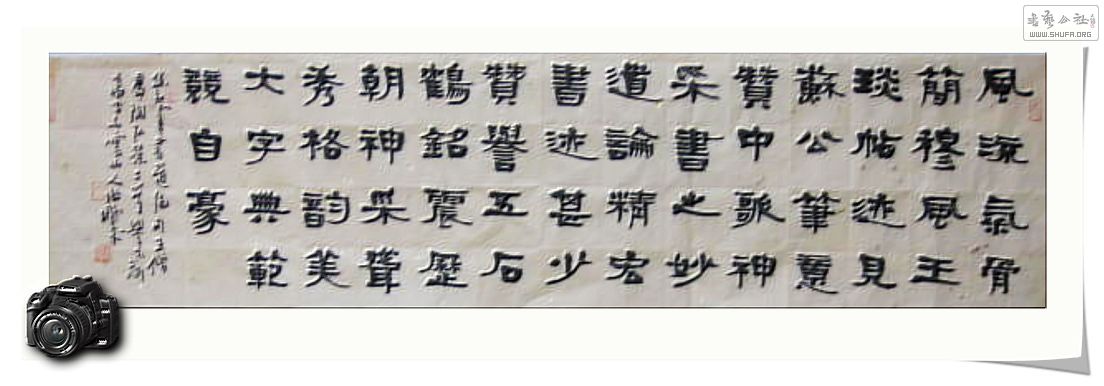 風流氣骨
簡穆風王
琰帖迹見
蘇公筆意
贊中歌神
采書之妙
道論精宏
書述甚少
贊譽五石
鶴銘震歷
朝神采聳
秀格韵美
大字典範
競自豪
WWW.SHUFA.ORG